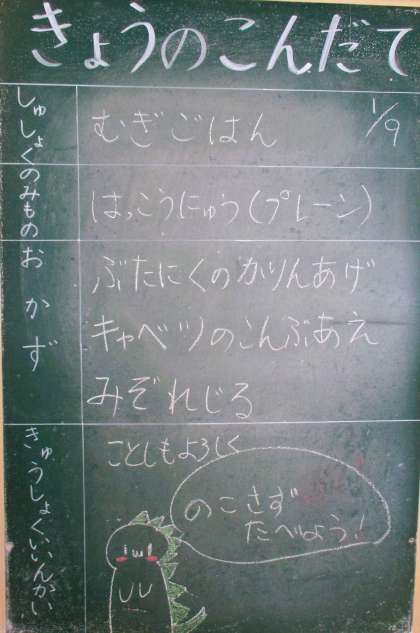 きょうのこんだて
1/9
しゅしょく
むぎごはん
のみもの
はっこうにゅう(プレーン)
おかず
ぶたにくのかりんあげ
キャベツのこんぶあえ
みぞれじる
きゅうしょくいいんかい
ことしもよろしく
のこさず
たべよう!